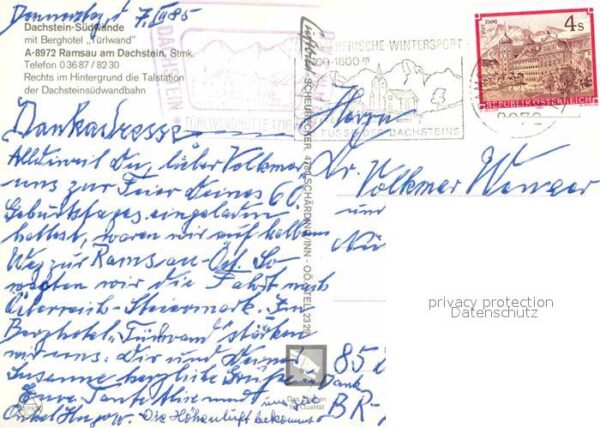 Donnerstag, d 7. III 85
Dachstein-Südwände
mit Berghotel „Türlwand"
A-8972 Ramsau am Dachstein, Stmk.
Telefon 0 36 87 / 82 30
Rechts im Hintergrund die Talstation
der Dachsteinsüdwandbahn
DACHSTEIN
TÜRLWANDHÜTTE 1716
STEIRISCHE-WINTERSPORT
-1800 m
FUSSE DES DACHSTEINS
4 S
REPUBLIK ÖSTERREICH
Dankadresse
Alldieweil Du, lieber Volkmar
uns zur Feier Deines 60.
Geburtstages eingeladen
hattest, waren wir auf halbem
Weg zur Ramsau-Ort. So
wagten wir die Fahrt nach
Österreich-Steiermark. Im
Berghotel „Türlwand" stärken
wir uns. Dir und Deiner
Susanne herzliche Grüße u Dank
Eure Tante Lise und
Onkel
uns gut
Die Höhenluft bekommt
SCHÄRDING/INN - OÖ., TEL. 23 29
Herrn
Dr. Volkmar Wenger
und
85
BR-
privacy protection
Datenschutz